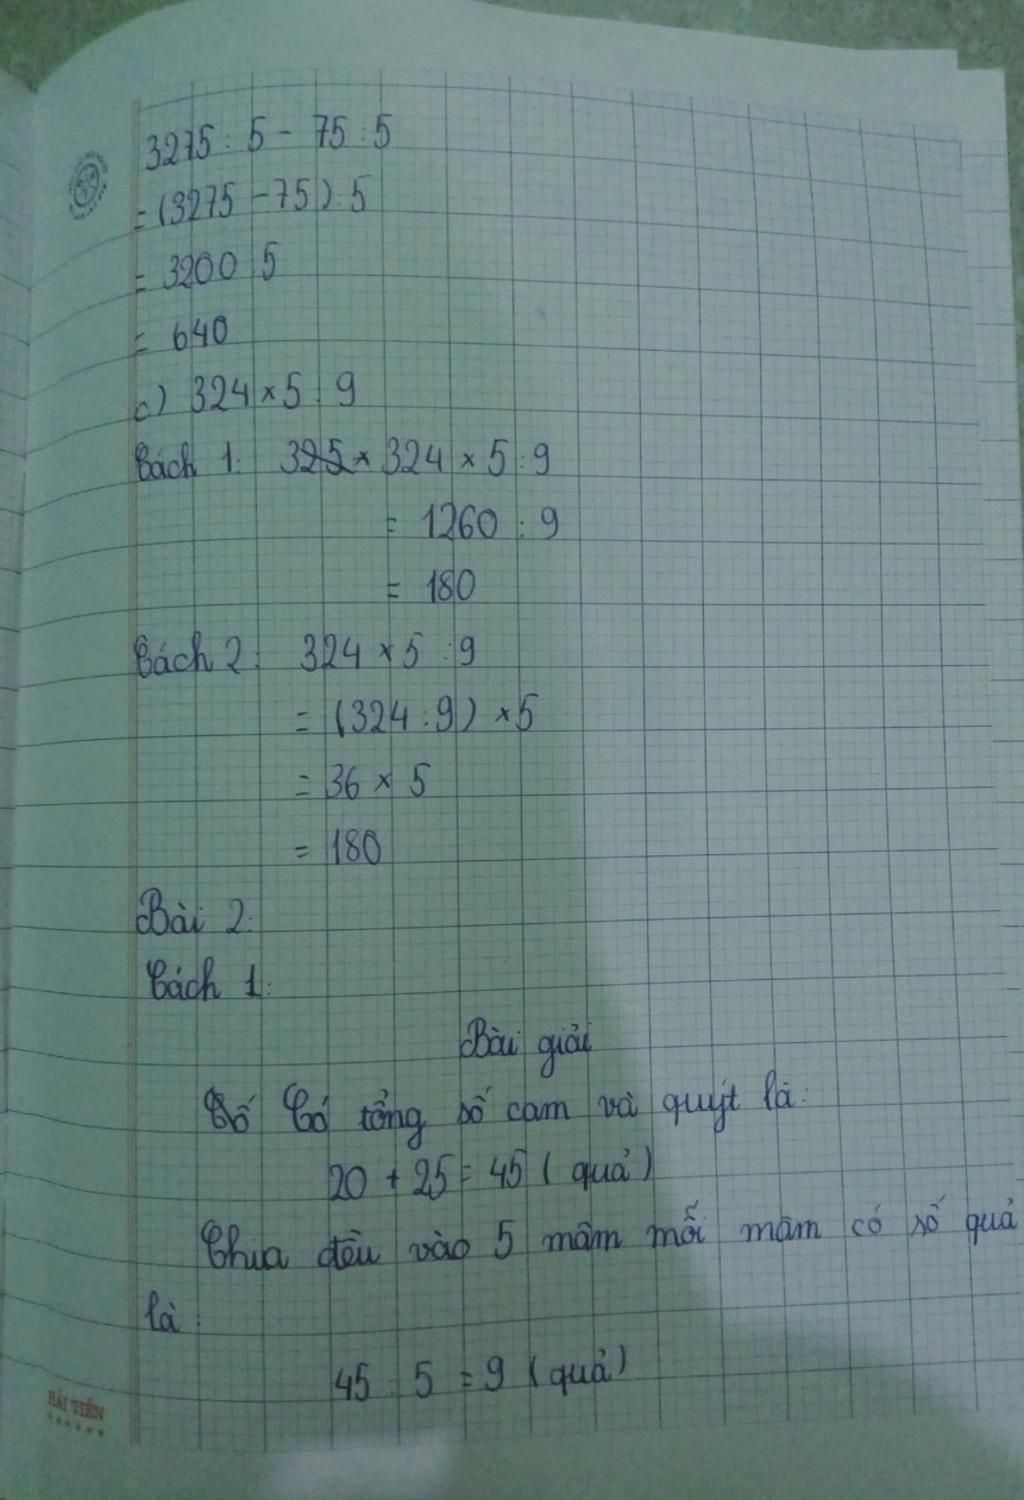 3275 : 5 - 75 : 5
= (3275 - 75) : 5
= 3200 : 5
= 640
c) 324 × 5 : 9
Cách 1: 325 × 324 × 5 : 9
= 1260 : 9
= 180
Cách 2: 324 × 5 : 9
= (324 : 9) × 5
= 36 × 5
= 180
Bài 2:
Cách 1:
Bài giải
Số Có tổng số cam và quýt là:
20 + 25 = 45 (quả)
Chia đều vào 5 mâm mỗi mâm có số quả
là:
45 : 5 = 9 (quả)
HẢI TIẾN